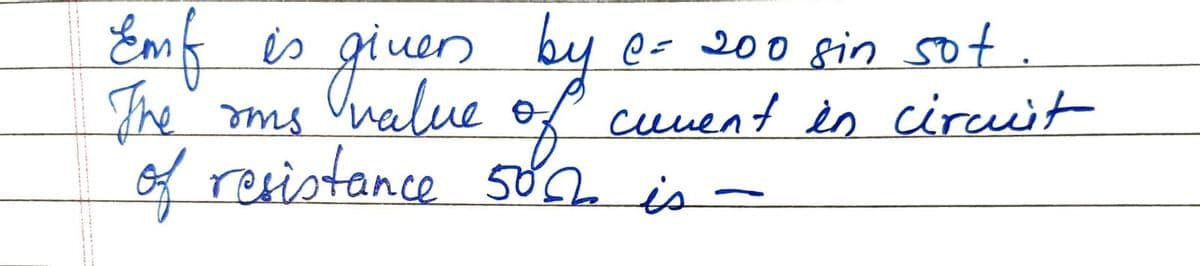 Emf is given by e= 200 sin 50t.
The rms value of current in circuit
of resistance 50Ω is -